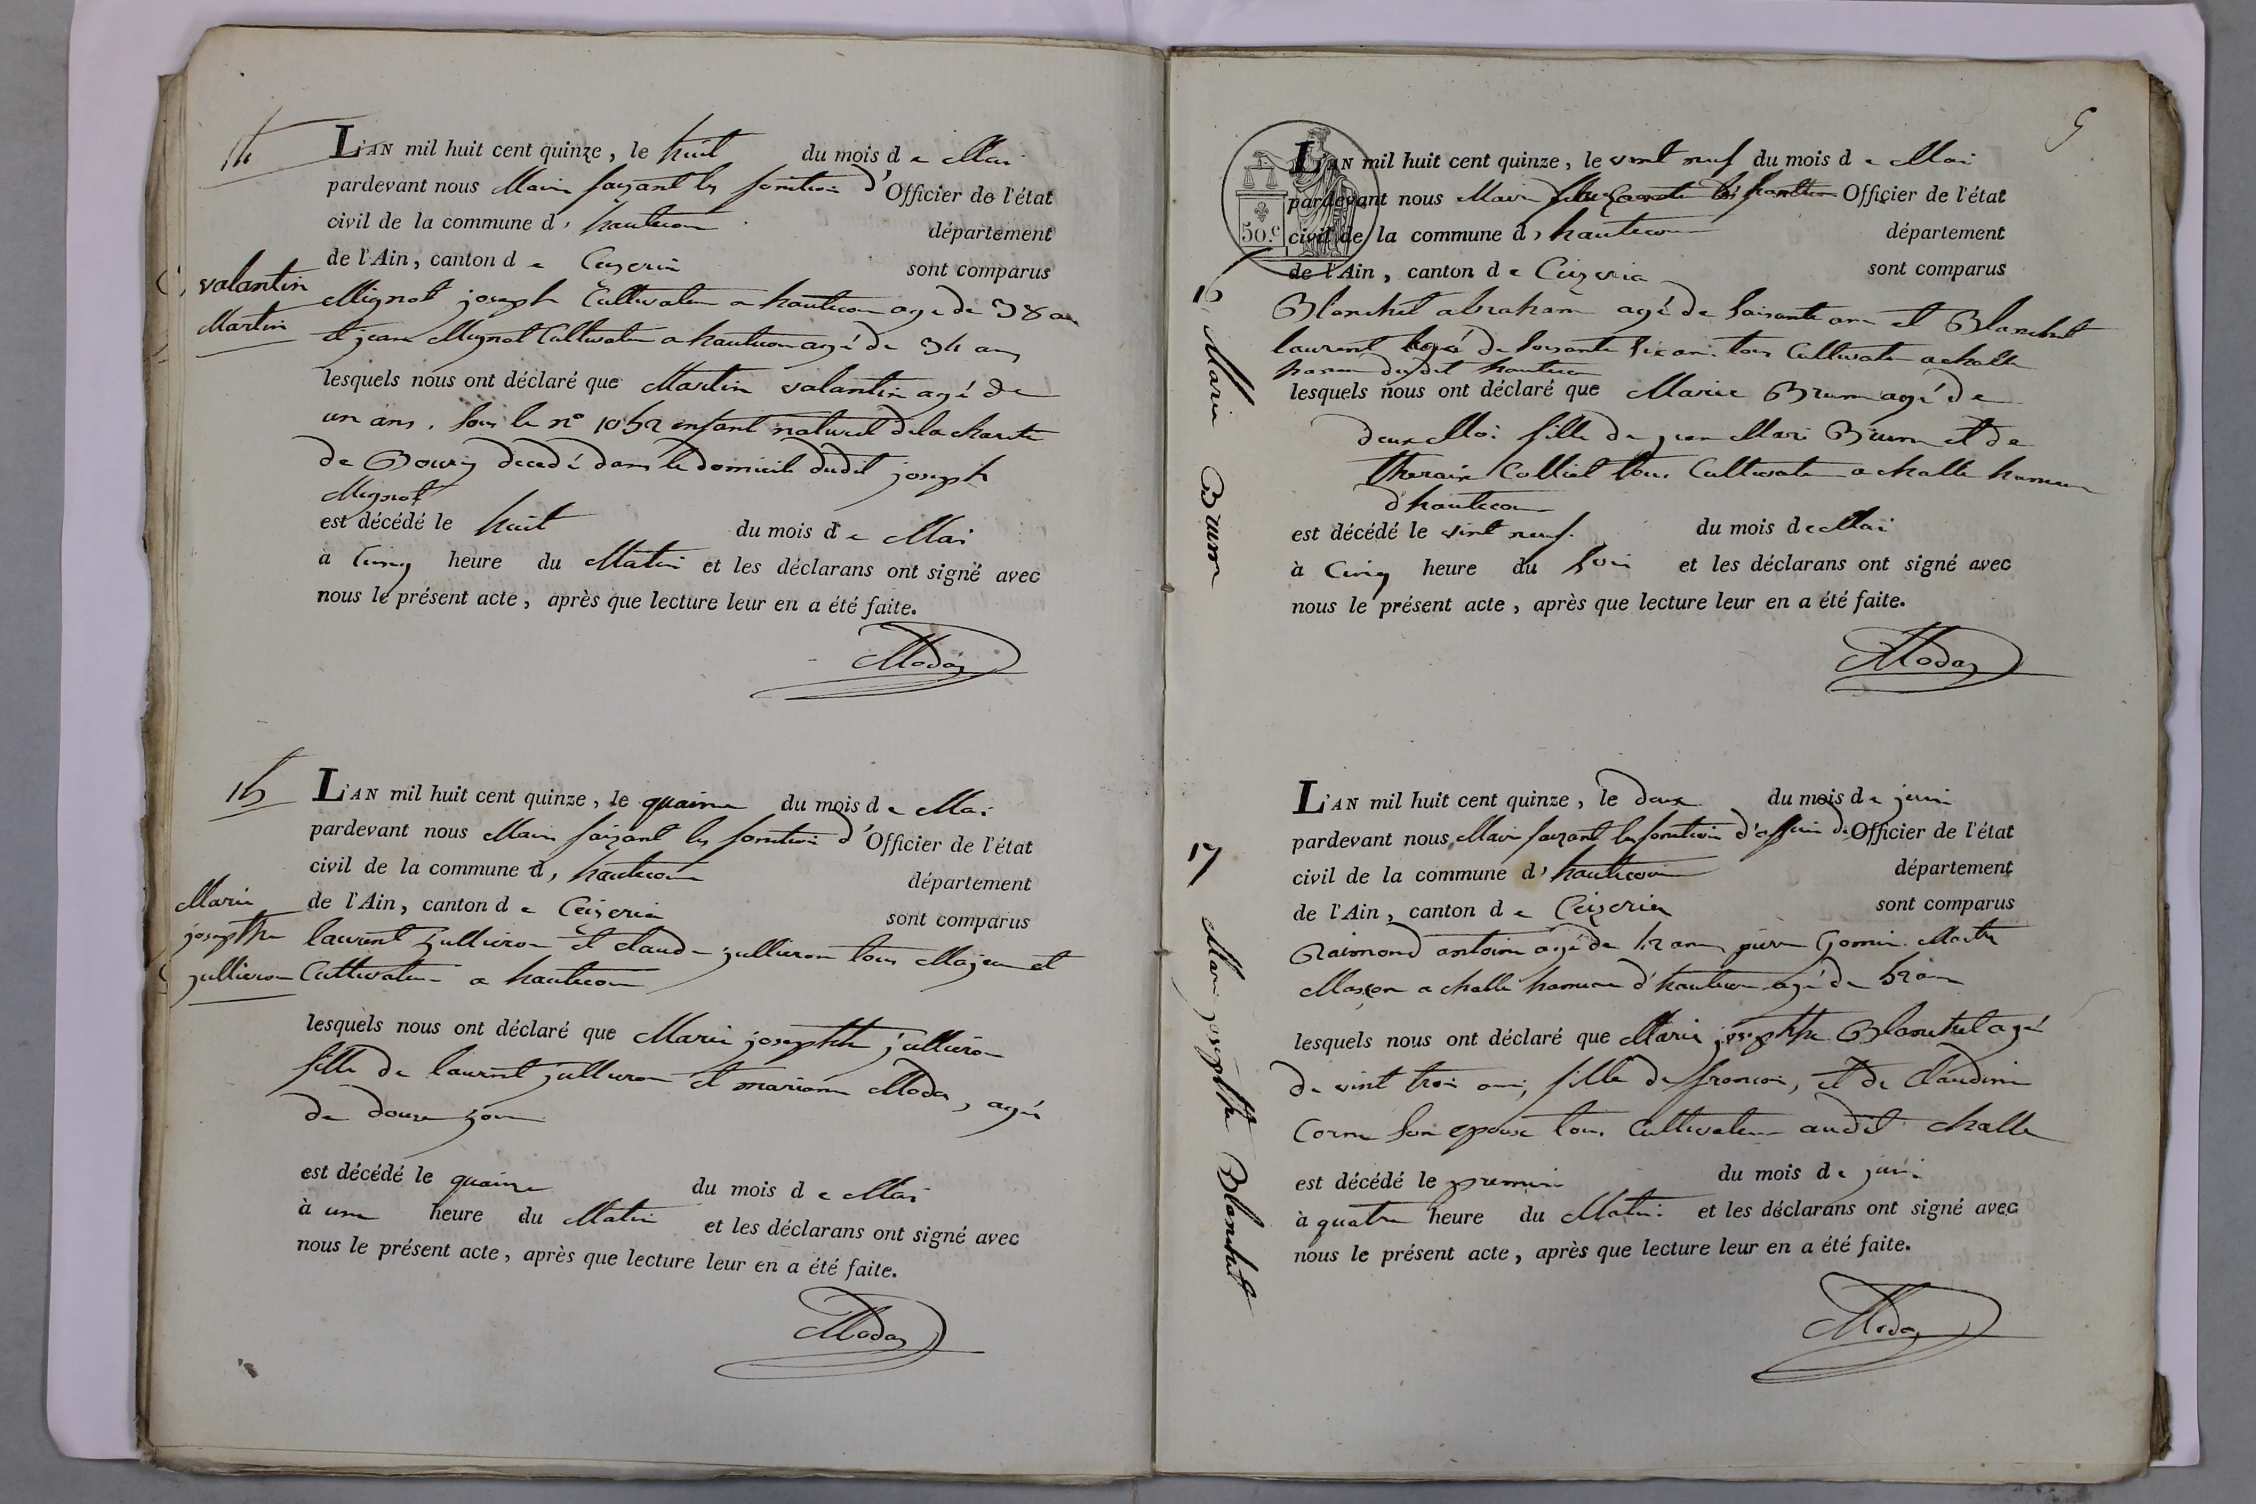 14
L'AN mil huit cent quinze, le huit du mois d e Mai
pardevant nous Maire faizant les fonction d'Officier de l'état
civil de la commune d' hautecour département
de l'Ain, canton d e Ceyzeria sont comparus
valantin
Martin
Mignot joseph Cultivateur a hautecour agé de 38 an
et jean Mignot Cultivateur a hautecour agé de 34 ans
lesquels nous ont déclaré que Martin valantin agé de
un ans, sous le n° 1052 enfant naturel de la charité
de Bourg decedé dans le domicile dudit joseph
Mignot
est décédé le huit du mois d e Mai
à Cinq heure du Matin et les déclarans ont signé avec
nous le présent acte, après que lecture leur en a été faite.
Moda
15
L'AN mil huit cent quinze, le quainze du mois d e Mai
pardevant nous Maire faizant les fonction d'Officier de l'état
civil de la commune d, hautecour département
de l'Ain, canton d e Ceizeria sont comparus
Marie
josephte
jullieron
laurent jullieron et claude jullieron tous Majeur et
Cultivateur a hautecour
lesquels nous ont déclaré que Marie josephte jullieron
fille de laurent jullieron et marianne Moda, agée
de douze jour
est décédé le quainze du mois d e Mai
à une heure du Matin et les déclarans ont signé avec
nous le présent acte, après que lecture leur en a été faite.
Moda
5
50.c
L'AN mil huit cent quinze, le vint neuf du mois d e Mai
pardevant nous Maire Officier de l'état
civil de la commune d, hautecour département
de l'Ain, canton d e Ceizeria sont comparus
16 Marie Brun
Blanchet abraham agé de soisante ans et Blanchet
laurent agé de soisante six ans tous Cultivateur a challe
hameau dudit hautecour
lesquels nous ont déclaré que Marie Brun agé de
deux Moi fille de jean Mari Brun et de
tous Cultivateur a challe hameau
d'hautecour
est décédé le vint neuf du mois d e Mai
à Cinq heure du soir et les déclarans ont signé avec
nous le présent acte, après que lecture leur en a été faite.
Moda
L'AN mil huit cent quinze, le deux du mois d e juin
pardevant nous Maire faizant les fonction d'officier de Officier de l'état
civil de la commune d' hautecour département
de l'Ain, canton d e Ceizeria sont comparus
17 Marie josephte Blanchet
Raimond antoine agé de ans, pierre Gomin Maitre
Maçon a challe hameau d'hautecour agé de 52 an
lesquels nous ont déclaré que Marie josephte Blanchet agé
de vint trois ans, fille de françois, et de Claudine
Corne son epouse tous Cultivateur audit challe
est décédé le premier du mois d e juin
à quatre heure du Matin et les déclarans ont signé avec
nous le présent acte, après que lecture leur en a été faite.
Moda